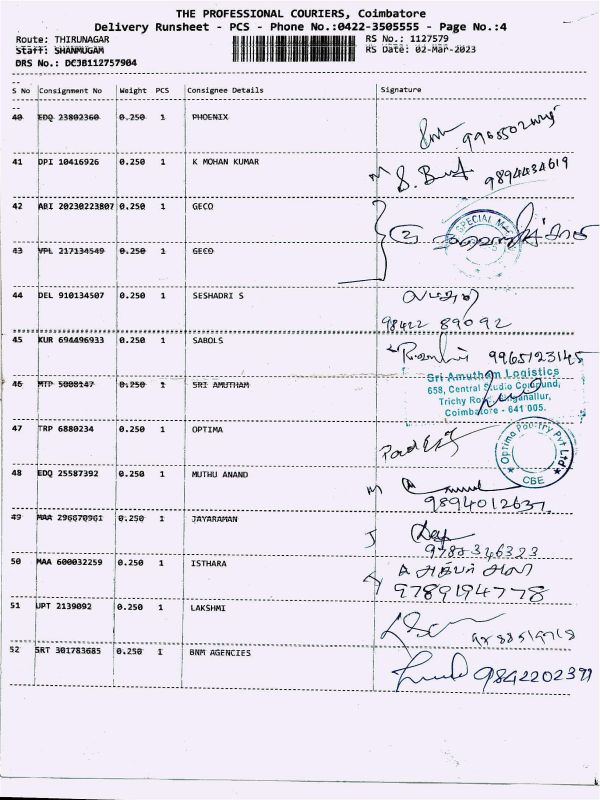 THE PROFESSIONAL COURIERS, Coimbatore
Delivery Runsheet - PCS - Phone No.:0422-3505555 - Page No.:4
Route: THIRUNAGAR RS No.: 1127579
Staff: SHANMUGAM RS Date: 02-Mar-2023
DRS No.: DCJB112757904
S No Consignment No Weight PCS Consignee Details Signature
40 EDQ 23802360 0.250 1 PHOENIX
41 DPI 10416926 0.250 1 K MOHAN KUMAR 9894434619
42 ABI 20230223807 0.250 1 GECO
SPECIAL
43 VPL 217134549 0.250 1 GECO
44 DEL 910134507 0.250 1 SESHADRI S
98422 89092
45 KUR 694496933 0.250 1 SABOLS 9965123145
46 MTP 5008147 0.250 1 SRI AMUTHAM
Sri Amutham Logistics
658, Central Studio Compund,
Trichy Road, Singanallur,
Coimbatore - 641 005.
47 TRP 6880234 0.250 1 OPTIMA
Optima Poultry Pvt Ltd
CBE
48 EDQ 25587392 0.250 1 MUTHU ANAND
9894012637
49 MAA 296870961 0.250 1 JAYARAMAN
50 MAA 600032259 0.250 1 ISTHARA
9789194778
51 UPT 2139092 0.250 1 LAKSHMI
52 SRT 301783685 0.250 1 BNM AGENCIES